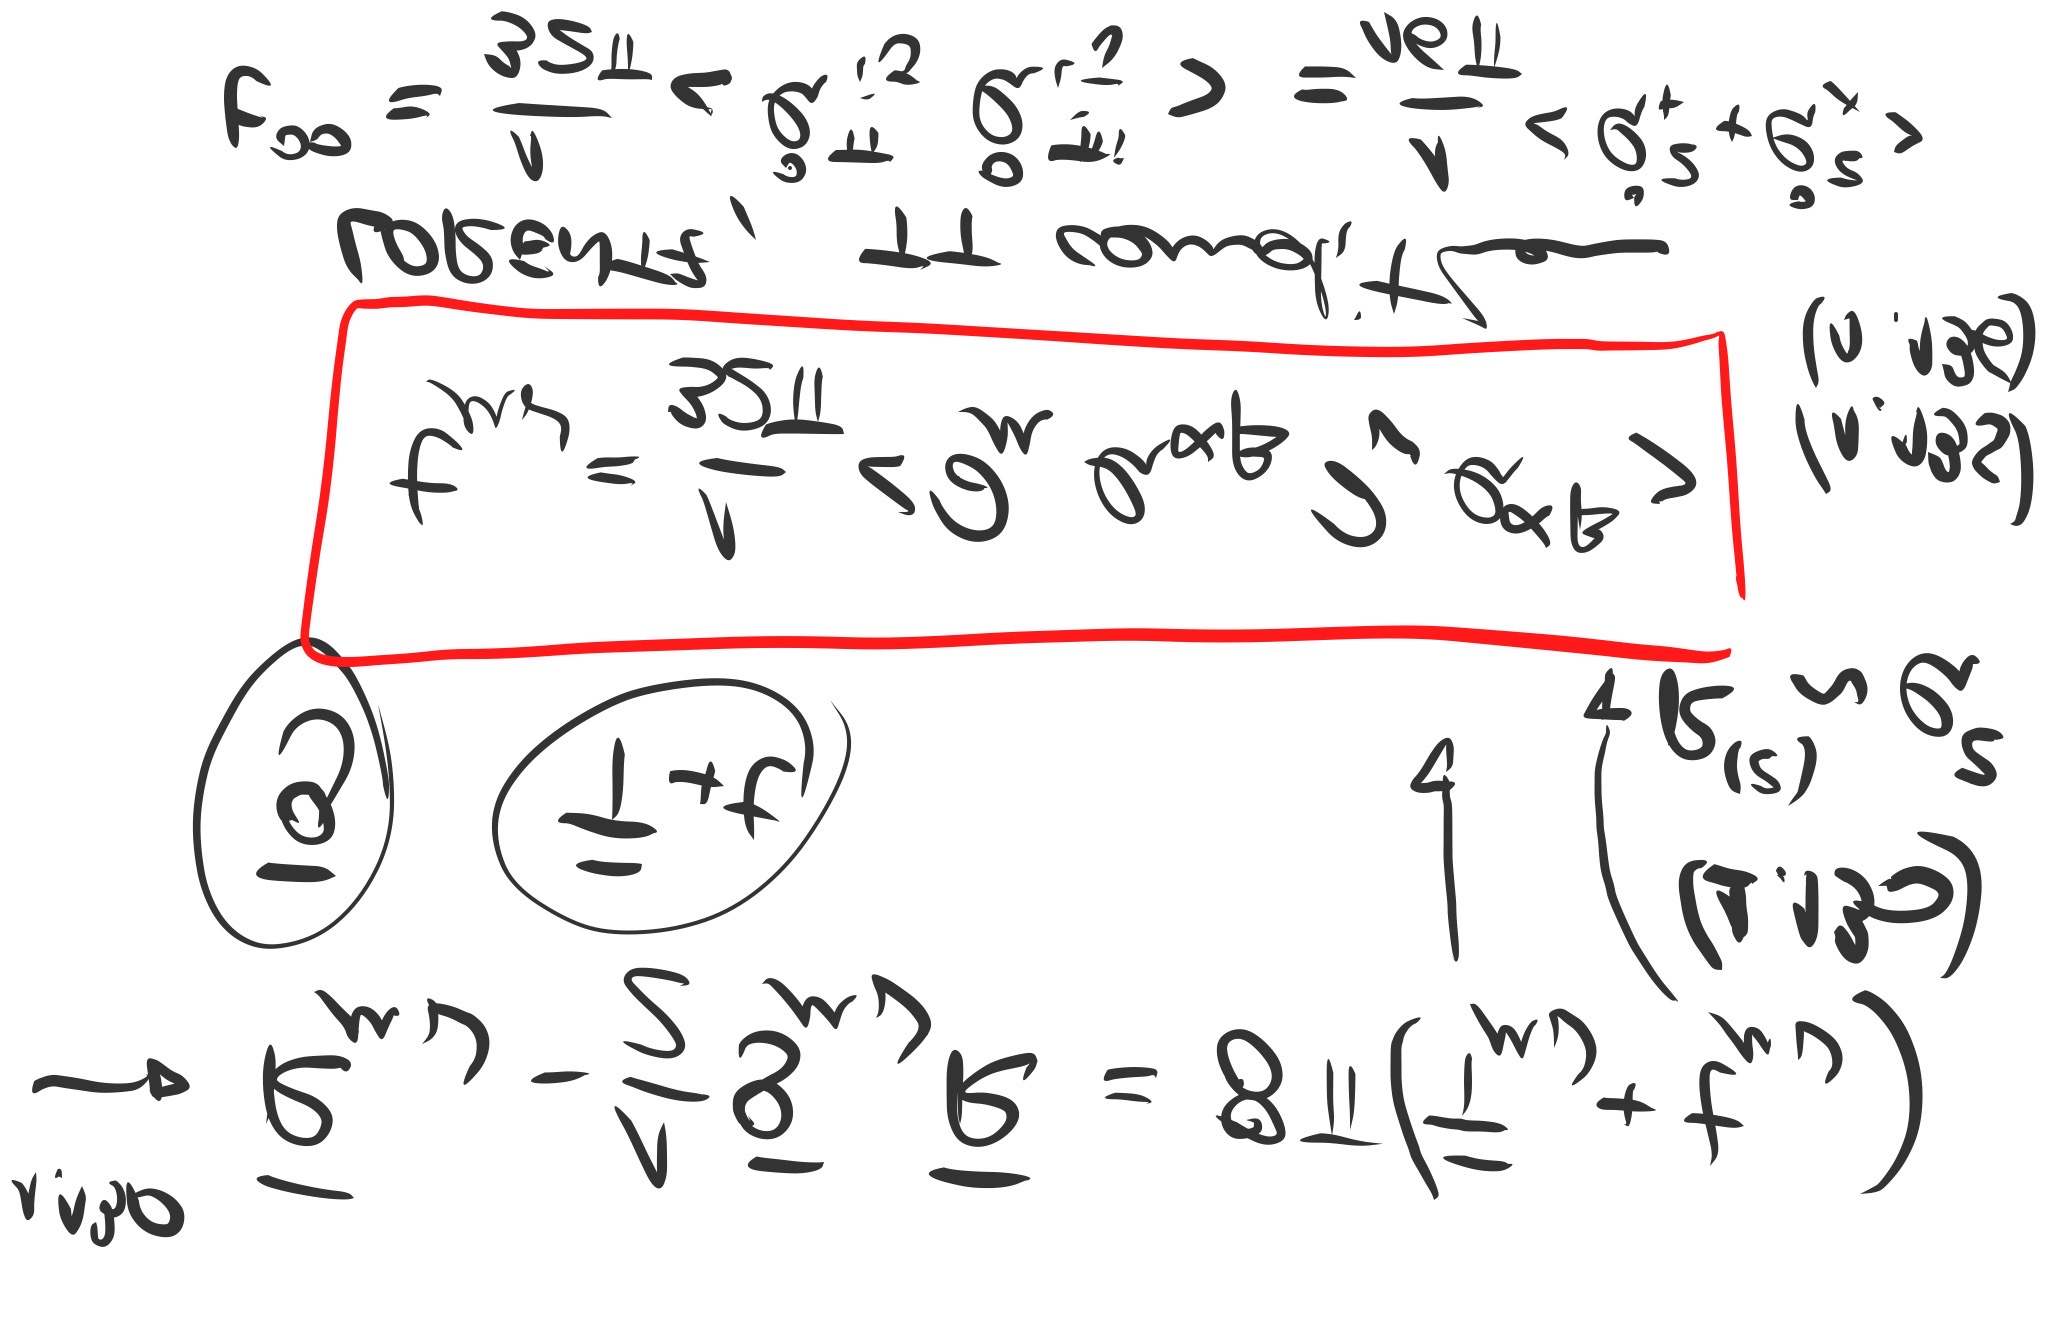 1.130
→ R̄_μν - 1/2 ḡ_μν R̄ = 8π(T̄_μν + t_μν)
(1.130)
ḡ T̄+t R^(2) ~ h^2
t_μν = 1/32π <∂_μ h_αβ ∂_ν h^αβ> (1.135)
(1.136)
LORENTZ, TT condition
t^00 = 1/32π <ḣ_ij^TT ḣ_ij^TT> = 1/16π <ḣ_+^2 + ḣ_x^2>